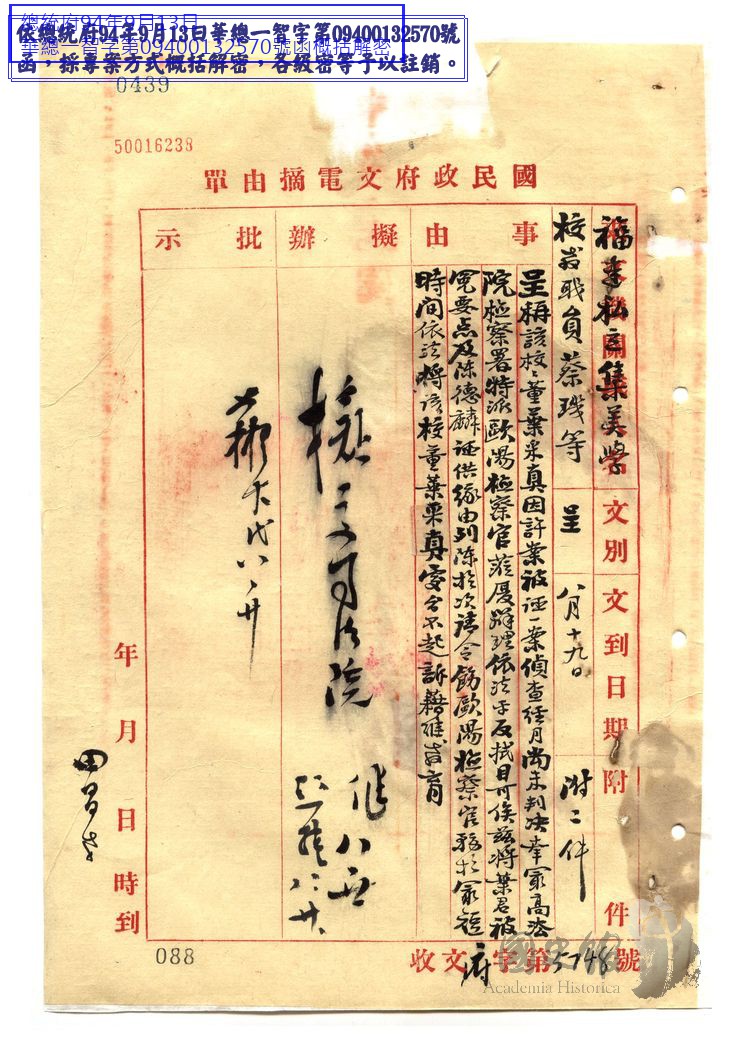 總統府94年9月13日
華總一智字第09400132570號函概括解密
依總統府94年9月13日華總一智字第09400132570號
函，採專案方式概括解密，各級密等予以註銷。
0439
50016238
國民政府文電摘由單
福建私立集美學
校教職員蔡璣等
文別
呈
文到日期
八月十九日
附件
附二件
事由
呈稱該校校董葉采真因訐案被誣一案偵查經月尚未判決幸最高法
院檢察署特派歐陽檢察官蒞廈辦理依法平反拭目可俟茲將葉君被
冤要点及陳德麟誣供緣由列陳於次請令飭歐陽檢察官務於最短
時间依法將該校董葉采真處分不起訴藉維教育
擬辦
批示
司法院
年月日時到
收文府字第5748號
國史館
Academia Historica
088